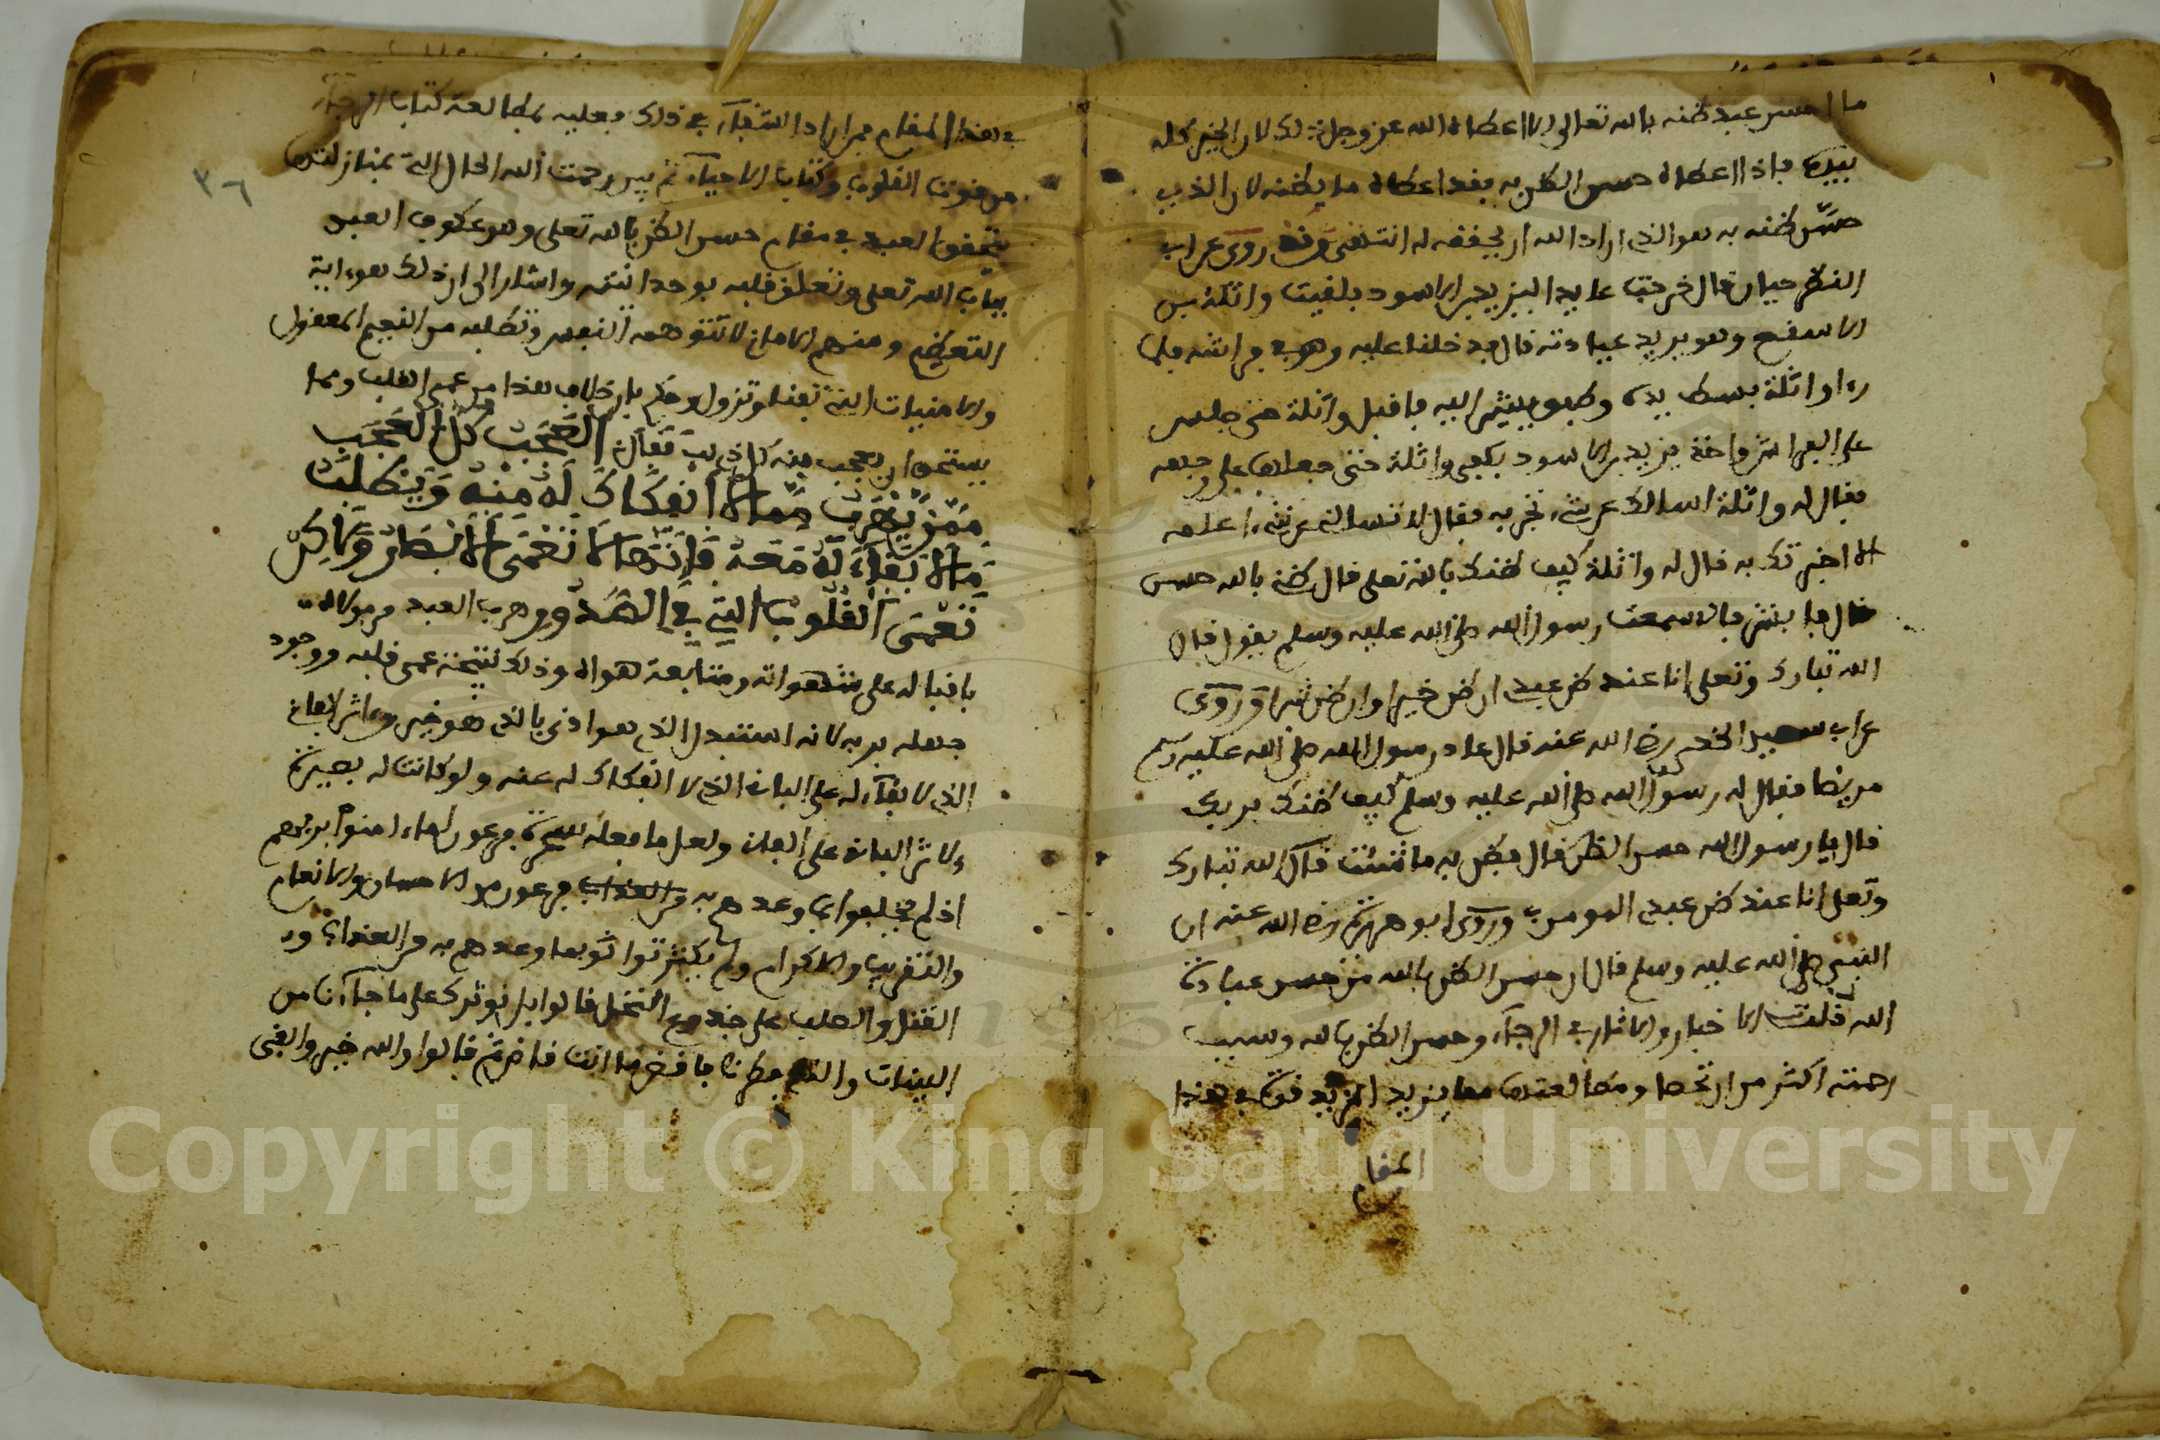 ما احسن عبد ظنه بالله تعالى الا اعطاه الله عز وجل ذلك لان الخير كله
بيده فاذا اعطاه حسن الظن به فقد اعطاه ما يظنه لان الذي
حسن ظنه به هو الذي اراد الله ان يحققه له انتهى وقد روي عن ابي
النضر حيان قال خرجت عايدا ليزيد بن الاسود فلقيت واثلة بن
الاسقع وهو يريد عيادته قال فدخلنا عليه وهو في فراشه فلما
رءا واثلة بسط يده وطفق يشير اليه فاقبل واثلة حتى جلس
على الفراش واخذ يزيد بن الاسود بكفي واثلة حتى جعلهما على وجهه
فقال له واثلة اسالك عن شيء تخبرني به فقال لا تسالني عن شيء اعلمه
الا اخبرتك به قال له واثلة كيف ظنك بالله تعلى قال ظني بالله حسن
قال فابشر فاني سمعت رسول الله صلى الله عليه وسلم يقول قال
الله تبارك وتعلى انا عند ظن عبدي ان ظن خيرا وان ظن شرا وروي
عن ابي سعيد الخدري رضي الله عنه قال عاد رسول الله صلى الله عليه وسلم
مريضا فقال له رسول الله صلى الله عليه وسلم كيف ظنك بربك
قال يا رسول الله حسن الظن قال فظن به ما شئت فان الله تبارك
وتعلى انا عند ظن عبدي المومن بي وروى ابو هريرة رضي الله عنه ان
النبي صلى الله عليه وسلم قال ان حسن الظن بالله من حسن عبادة
الله قلت الاخبار والاثار في الرجاء وحسن الظن بالله وسبب
رحمته اكثر من ان تحصا ومطالعتها مما يزيد المريد قوة في هذا
المقام
٣٦
في هذا المقام فمن اراد الشفاء في ذلك فعليه بمطالعة كتاب الرجاء
من قوت القلوب وكتاب الاحياء ثم بين رحمت الله الحال التي بمنازلتها
يتحقق العبد في مقام حسن الظن بالله تعلى وهو عكوف العبد
بباب الله تعلى وتعلق قلبه بوحدانيته واشار الى ان ذلك هو غاية
التعظيم ومنتهى الامل لا تتوهمه النفس وتطلبه من النعيم المعقول
والامنيات التي تفنا وتزول وحكم بان خلاف هذا من عمى القلب ومما
يستحق ان يعجب منه كل ذي لب فقال العجب كل العجب
ممن يهرب مما لا انفكاك له منه ويطلب
ما لا بقاء له معه فانها لا تعمى الابصار ولكن
تعمى القلوب التي في الصدور هرب العبد من مولاه
باقباله على شهواته ومتابعة هواه وذلك نتيجة عمى قلبه ووجود
جهله بربه لانه استبدل الذي هو ادنى بالذي هو خير وءاثر الفاني
الذي لا بقاء له على الباقي الذي لا انفكاك له عنه ولو كانت له بصيرة
لاثر الباقي على الفاني ولعل ما فعله سحرة فرعون لما ءامنوا بربهم
اذ لم يحفلوا بما وعدهم به فرعون من الاحسان والانعام
والتقريب والاكرام ولم يكترثوا بما وعدهم به من العذاب و
القتل والصلب على جذوع النخل قالوا لن نوثرك على ما جاءنا من
البينات والذي فطرنا فاقض ما انت قاض ثم قالوا والله خير وابقى